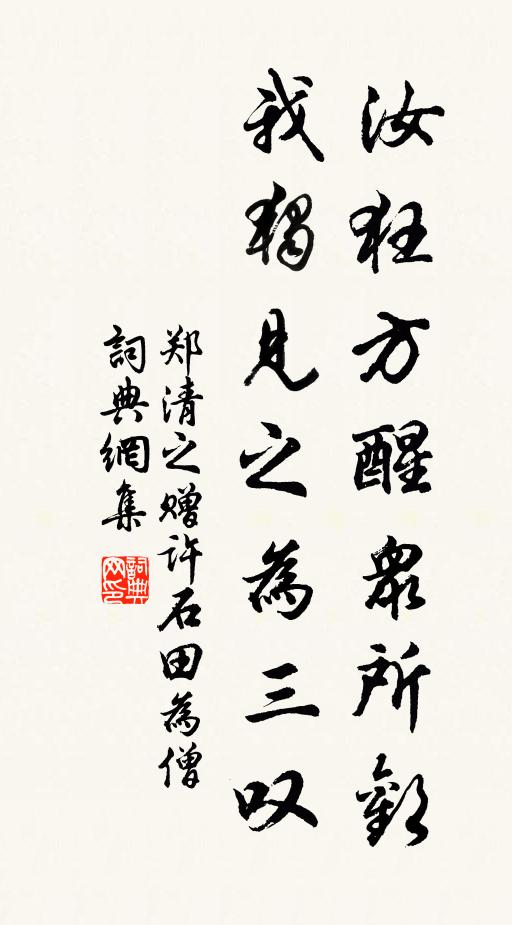 汝狂方醒眾所歡
我獨見之為三叹
郑清之赠许石田為僧
詞典網集
詞典
网印